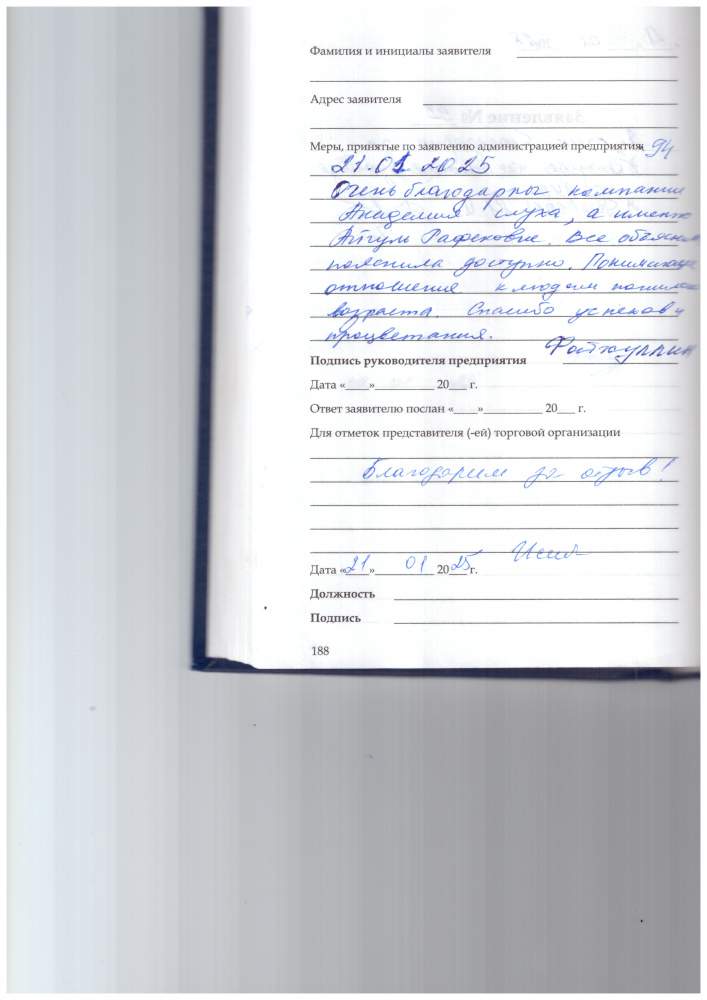 Фамилия и инициалы заявителя
Адрес заявителя
Меры, принятые по заявлению администрацией предприятия 94
21.01 2025
Очень благодарны компании
Академия слуха, а именно
Айгуль Рафековне. Все объясни
пояснила доступно. Понимающе
отношения к людям пожилого
возраста. Спасибо успехов и
процветания.
Файтхуллин
Подпись руководителя предприятия
Дата «____»__________ 20___ г.
Ответ заявителю послан «____»__________ 20___ г.
Для отметок представителя (-ей) торговой организации
Благодарим за отзыв!
Дата «21» 01 2025 г.
Должность
Подпись
188